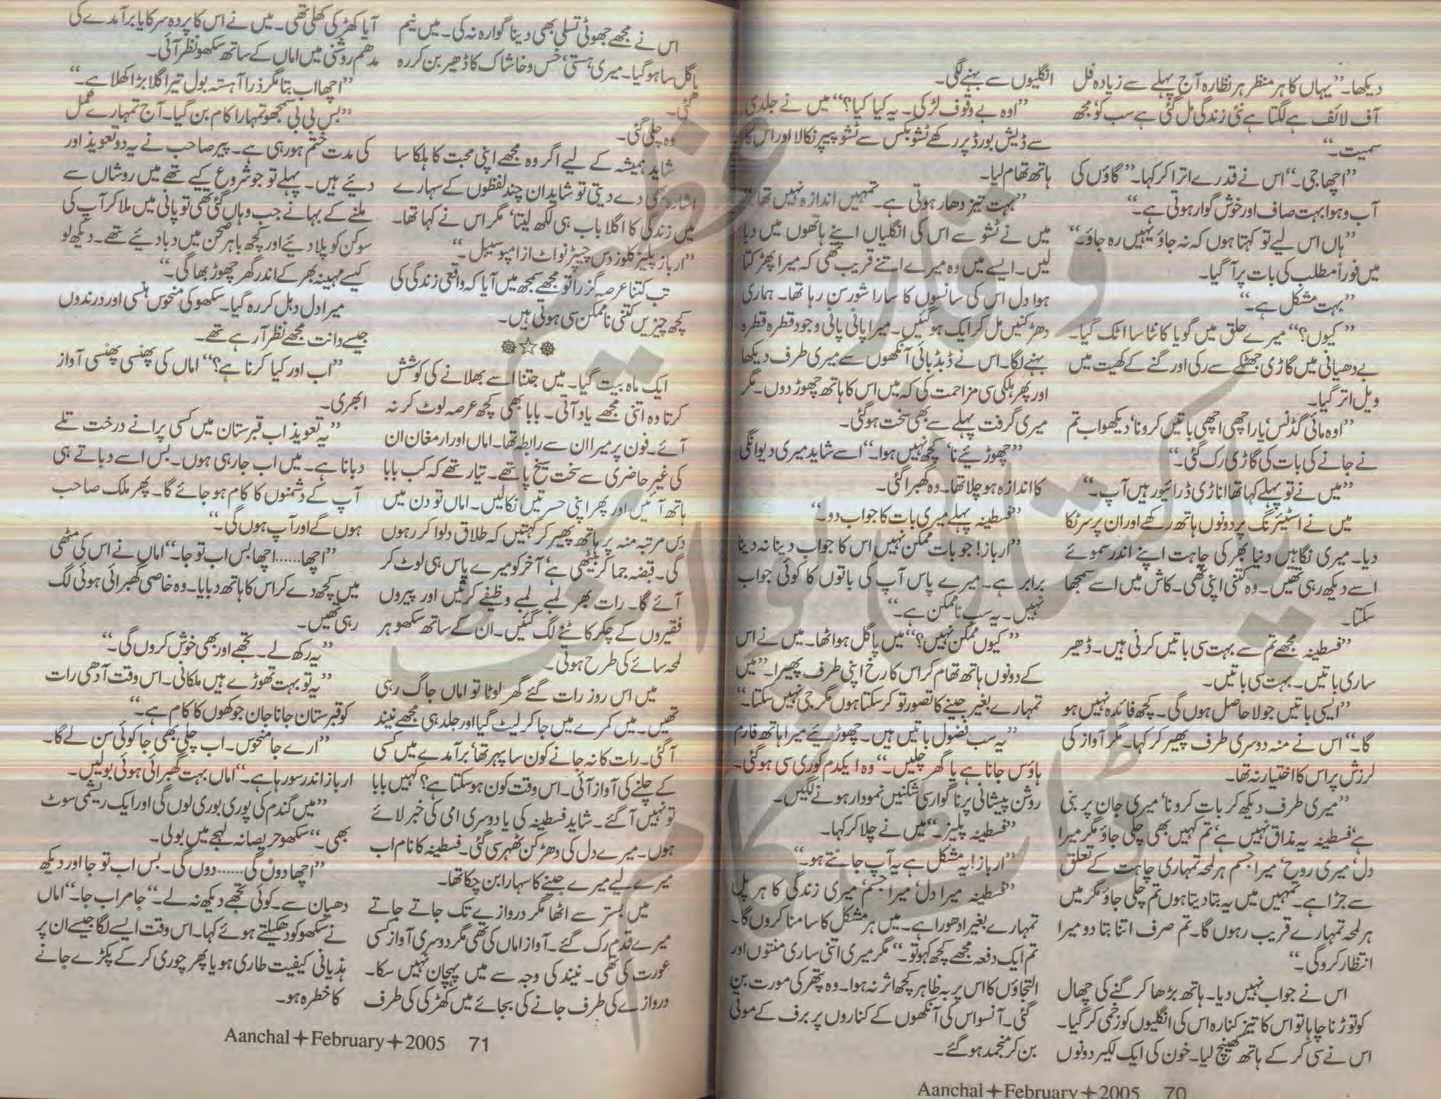 دیکھا۔ ”یہاں کا ہر منظر ہر نظارہ آج پہلے سے زیادہ فل
آف لائف ہے لگتا ہے نئی زندگی مل گئی ہے سب کو مجھ
سمیت۔“
”اچھا جی۔“ اس نے قدرے اترا کر کہا۔ ”گاؤں کی
آب و ہوا بہت صاف اور خوش گوار ہوتی ہے۔“
”ہاں اس لیے تو کہتا ہوں کہ نہ جاؤ یہیں رہ جاؤ۔“
میں فوراً مطلب کی بات پر آ گیا۔
”بہت مشکل ہے۔“
”کیوں؟“ میرے حلق میں گویا کانٹا سا اٹک گیا۔
بے دھیانی میں گاڑی جھٹکے سے رکی اور گنے کے کھیت میں
ویل اتر گیا۔
”اوہ مائی گڈنس‘ یار اچھی اچھی باتیں کرو نا‘ دیکھو اب تم
نے جانے کی بات کی گاڑی رک گئی۔“
”میں نے تو پہلے کہا تھا اناڑی ڈرائیور ہیں آپ۔“
میں نے اسٹیئرنگ پر دونوں ہاتھ رکھے اور ان پر سر ٹکا
دیا۔ میری نگاہیں دنیا بھر کی چاہت اپنے اندر سموئے
اسے دیکھ رہی تھیں۔ وہ کتنی اپنی تھی۔ کاش میں اسے سمجھا
سکتا۔
”فسطینہ مجھے تم سے بہت سی باتیں کرنی ہیں۔ ڈھیر
ساری باتیں۔ بہت سی باتیں۔
”ایسی باتیں جو لا حاصل ہوں گی۔ کچھ فائدہ نہیں ہو
گا۔“ اس نے منہ دوسری طرف پھیر کر کہا۔ مگر آواز کی
لرزش پر اس کا اختیار نہ تھا۔
”میری طرف دیکھ کر بات کرو نا‘ میری جان پر بنی
ہے‘ فسطینہ یہ مذاق نہیں ہے‘ تم کہیں بھی چلی جاؤ مگر میرا
دل‘ میری روح‘ میرا جسم ہر لمحہ تمہاری چاہت کے تعلق
سے جڑا ہے۔ تمہیں میں یہ بتا دیتا ہوں تم چلی جاؤ گر میں
ہر لمحہ تمہارے قریب رہوں گا۔ تم صرف اتنا بتا دو میرا
انتظار کرو گی۔“
اس نے جواب نہیں دیا۔ ہاتھ بڑھا کر گنے کی چھال
کو توڑنا چاہا تو اس کا تیز کنارہ اس کی انگلیوں کو زخمی کر گیا۔
اس نے سی کر کے ہاتھ کھینچ لیا۔ خون کی ایک لکیر دونوں
انگلیوں سے بہنے لگی۔
”اوہ بے وقوف لڑکی۔ یہ کیا کیا؟“ میں نے جلدی
سے ڈیش بورڈ پر رکھے ٹشو بکس سے ٹشو پیپر نکالا اور اس کا
ہاتھ تھام لیا۔
”بہت تیز دھار ہوتی ہے۔ تمہیں اندازہ نہیں تھا“
میں نے ٹشو سے اس کی انگلیاں اپنے ہاتھوں میں دبا
لیں۔ ایسے میں وہ میرے اتنے قریب تھی کہ میرا پھڑکتا
ہوا دل اس کی سانسوں کا سارا شور سن رہا تھا۔ ہماری
دھڑکنیں مل کر ایک ہو گئیں۔ میرا پانی پانی وجود قطرہ قطرہ
بہنے لگا۔ اس نے ڈبڈبائی آنکھوں سے میری طرف دیکھا
اور پھر ہلکی سی مزاحمت کی کہ میں اس کا ہاتھ چھوڑ دوں۔ مگر
میری گرفت پہلے سے بھی سخت ہو گئی۔
”چھوڑیئے نا‘ کچھ نہیں ہوا۔“ اسے شاید میری دیوانگی
کا اندازہ ہو چلا تھا۔ وہ گھبرا گئی۔
”فسطینہ پہلے میری بات کا جواب دو۔“
”ارباز! جو بات ممکن نہیں اس کا جواب دینا نہ دینا
برابر ہے۔ میرے پاس آپ کی باتوں کا کوئی جواب
نہیں۔ یہ سب ناممکن ہے۔“
”کیوں ممکن نہیں؟“ میں پاگل ہو اٹھا۔ میں نے اس
کے دونوں ہاتھ تھام کر اس کا رخ اپنی طرف پھیرا۔ ”میں
تمہارے بغیر جینے کا تصور تو کر سکتا ہوں مگر جی نہیں سکتا۔“
”یہ سب فضول باتیں ہیں۔ چھوڑیئے میرا ہاتھ فارم
ہاؤس جانا ہے یا گھر چلیں۔“ وہ ایکدم کوری سی ہو گئی۔
روشن پیشانی پر ناگواری کی شکنیں نمودار ہونے لگیں۔
”فسطینہ پلیز۔“ میں نے چلا کر کہا۔
”ارباز! یہ مشکل ہے یہ آپ جانتے ہو۔“
”فسطینہ میرا دل‘ میرا جسم‘ میری زندگی کا ہر پل
تمہارے بغیر ادھورا ہے۔ میں ہر مشکل کا سامنا کروں گا۔
تم ایک دفعہ مجھے کچھ کہو تو۔“ مگر میری اتنی ساری منتوں اور
التجاؤں کا اس پر بہ ظاہر کچھ اثر نہ ہوا۔ وہ پتھر کی مورت بن
گئی۔ آنسو اس کی آنکھوں کے کناروں پر برف کے موتی
بن کر منجمد ہو گئے۔
Aanchal✦February✦2005 70
اس نے مجھے جھوٹی تسلی بھی دینا گوارہ نہ کی۔ میں نیم
پاگل سا ہو گیا۔ میری ہستی‘ خس و خاشاک کا ڈھیر بن کر رہ
گئی۔
وہ چلی گئی۔
شاید ہمیشہ کے لیے اگر وہ مجھے اپنی محبت کا ہلکا سا
اشارہ ہی دے دیتی تو شاید ان چند لفظوں کے سہارے
میں زندگی کا اگلا باب ہی لکھ لیتا‘ مگر اس نے کہا تھا۔
”ارباز پلیز کلوز دس چیپٹر ناٹ از امپوسیبل۔“
تب کتنا عرصہ گزرا تو مجھے سمجھ میں آیا کہ واقعی زندگی کی
کچھ چیزیں کتنی ناممکن سی ہوتی ہیں۔
❁☆❁
ایک ماہ بیت گیا۔ میں جتنا اسے بھلانے کی کوشش
کرتا وہ اتنی مجھے یاد آتی۔ بابا بھی کچھ عرصہ لوٹ کر نہ
آئے۔ فون پر میرا ان سے رابطہ تھا۔ اماں اور ارمغان ان
کی غیر حاضری سے سخت سیخ پا تھے۔ تیار تھے کہ کب بابا
ہاتھ آئیں اور پھر اپنی حسرتیں نکالیں۔ اماں تو دن میں
دس مرتبہ منہ پر ہاتھ پھیر کر کہتیں کہ طلاق دلوا کر رہوں
گی۔ قبضہ جما کر بیٹھی ہے‘ آخر کو میرے پاس ہی لوٹ کر
آئے گا۔ رات بھر لمبے لمبے وظیفے کرتیں اور پیروں
فقیروں کے چکر کاٹنے لگ گئیں۔ ان کے ساتھ سکھو ہر
لمحہ سائے کی طرح ہوتی۔
میں اس روز رات گئے گھر لوٹا تو اماں جاگ رہی
تھیں۔ میں کمرے میں جا کر لیٹ گیا اور جلد ہی مجھے نیند
آ گئی۔ رات کا نہ جانے کون سا پہر تھا‘ برآمدے میں کسی
کے چلنے کی آواز آئی۔ اس وقت کون ہو سکتا ہے؟ کہیں بابا
تو نہیں آ گئے۔ شاید فسطینہ کی یا دوسری امی کی خبر لائے
ہوں۔ میرے دل کی دھڑکن ٹھہر سی گئی۔ فسطینہ کا نام اب
میرے لیے میرے جینے کا سہارا بن چکا تھا۔
میں بستر سے اٹھا مگر دروازے تک جاتے جاتے
میرے قدم رک گئے۔ آواز اماں کی تھی مگر دوسری آواز کسی
عورت کی تھی۔ نیند کی وجہ سے میں پہچان نہیں سکا۔
دروازے کی طرف جانے کی بجائے میں کھڑکی کی طرف
آیا کھڑکی کھلی تھی۔ میں نے اس کا پردہ سرکایا برآمدے کی
مدھم روشنی میں اماں کے ساتھ سکھو نظر آئی۔
”اچھا اب بتا مگر ذرا آہستہ بول تیرا گلا بڑا کھلا ہے۔“
”بس بی بی سمجھو تمہارا کام بن گیا۔ آج تمہارے عمل
کی مدت ختم ہو رہی ہے۔ پیر صاحب نے یہ دو تعویذ اور
دیئے ہیں۔ پہلے تو جو شروع کیے تھے میں روشاں سے
ملنے کے بہانے جب وہاں گئی تھی تو پانی میں ملا کر آپ کی
سوکن کو پلا دیئے اور کچھ باہر صحن میں دبا دیئے تھے۔ دیکھ لو
کیسے مہینہ بھر کے اندر گھر چھوڑ بھاگی۔“
میرا دل دہل کر رہ گیا۔ سکھو کی منحوس ہنسی اور درندوں
جیسے دانت مجھے نظر آ رہے تھے۔
”اب اور کیا کرنا ہے؟“ اماں کی پھنسی پھنسی آواز
ابھری۔
”یہ تعویذ اب قبرستان میں کسی پرانے درخت تلے
دبانا ہے۔ میں اب جا رہی ہوں۔ بس اسے دباتے ہی
آپ کے دشمنوں کا کام ہو جائے گا۔ پھر ملک صاحب
ہوں گے اور آپ ہوں گی۔“
”اچھا......اچھا بس اب تو جا۔“ اماں نے اس کی مٹھی
میں کچھ دے کر اس کا ہاتھ دبایا۔ وہ خاصی گھبرائی ہوئی لگ
رہی تھیں۔
”یہ رکھ لے۔ تجھے اور بھی خوش کروں گی۔“
”یہ تو بہت تھوڑے ہیں ملکانی۔ اس وقت آدھی رات
کو قبرستان جانا جان جوکھوں کا کام ہے۔“
”ارے جا منحوس۔ اب چلی بھی جا کوئی سن لے گا۔
ارباز اندر سو رہا ہے۔“ اماں بہت گھبرائی ہوئی بولیں۔
”میں گندم کی پوری بوری لوں گی اور ایک ریشمی سوٹ
بھی۔“ سکھو حریصانہ لہجے میں بولی۔
”اچھا دوں گی......دوں گی۔ بس اب تو جا اور دیکھ
دھیان سے۔ کوئی تجھے دیکھ نہ لے۔“ جا مر اب جا۔“ اماں
نے سکھو کو دھکیلتے ہوئے کہا۔ اس وقت ایسے لگا جیسے ان پر
ہذیانی کیفیت طاری ہو یا پھر چوری کر کے پکڑے جانے
کا خطرہ ہو۔
Aanchal✦February✦2005 71